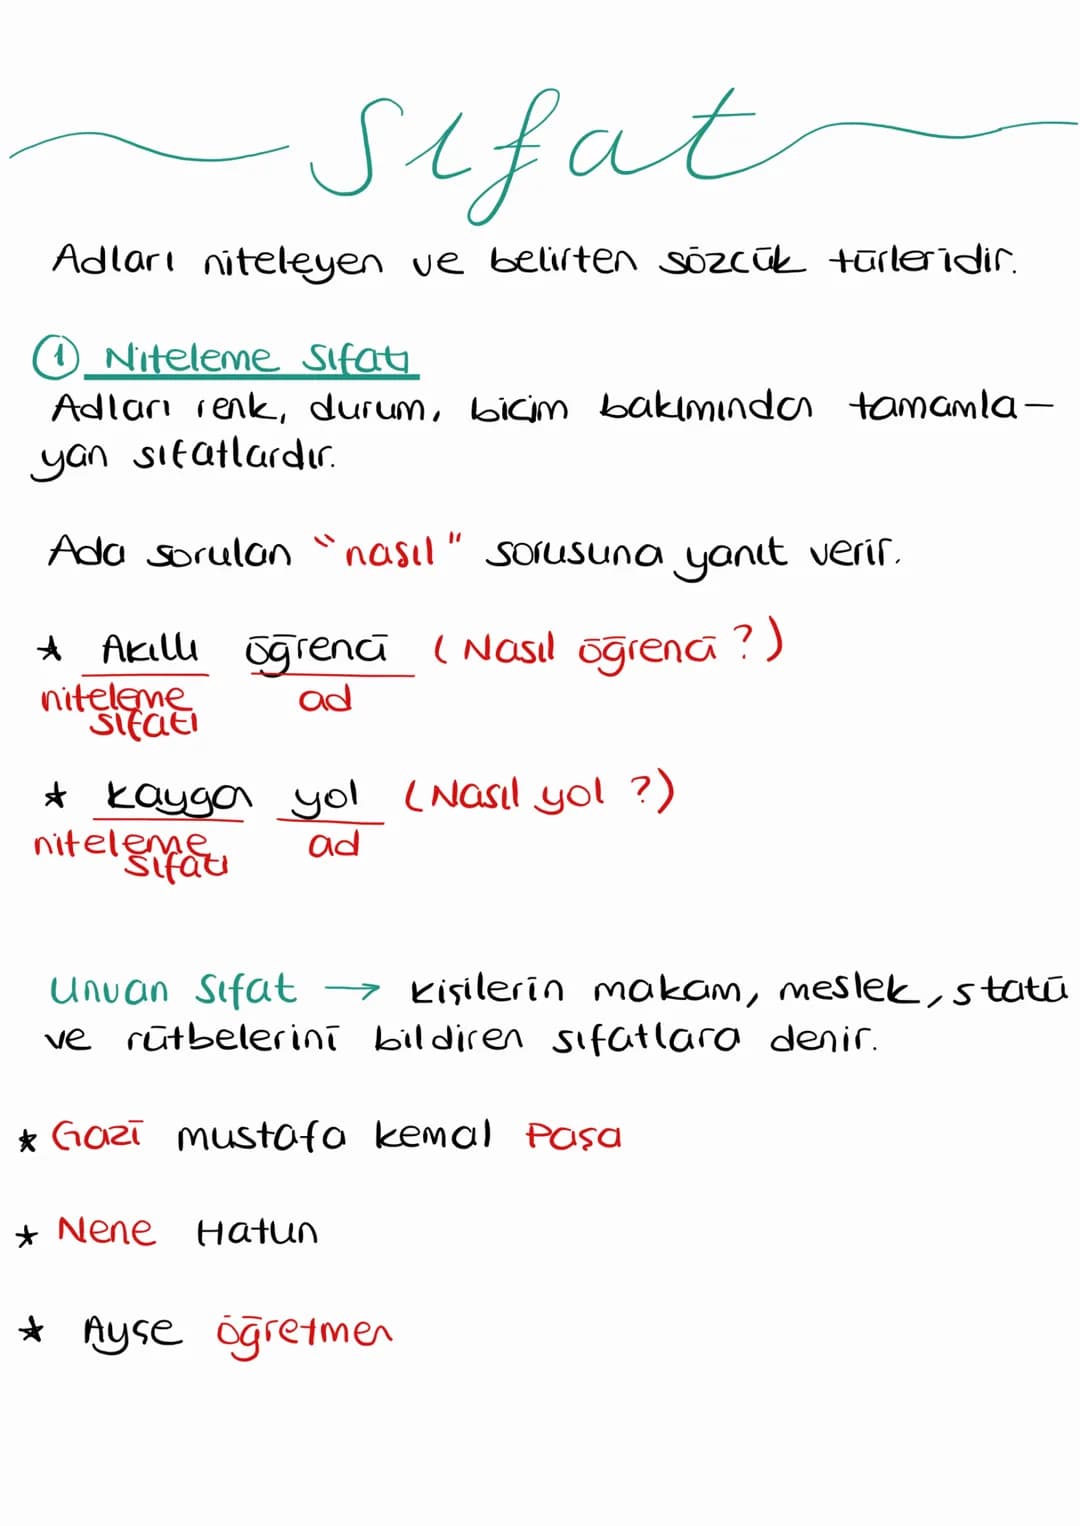 Sıfat
Adları niteleyen ve belirten sözcük türleridir.
1 Niteleme Sıfatı
Adları renk, durum, biçim bakımından tamamla-
yan sıfatlardır.
Ada sorulan "nasıl" sorusuna yanıt verir.
★ Akıllı öğrenci (Nasıl öğrenci?)
niteleme sıfatı ad
★ Kaygan yol (Nasıl yol?)
niteleme sıfatı ad
Unvan Sıfat → Kişilerin makam, meslek, statü
ve rütbelerini bildiren sıfatlara denir.
★ Gazi mustafa kemal Paşa
★ Nene Hatun
★ Ayşe öğretmen